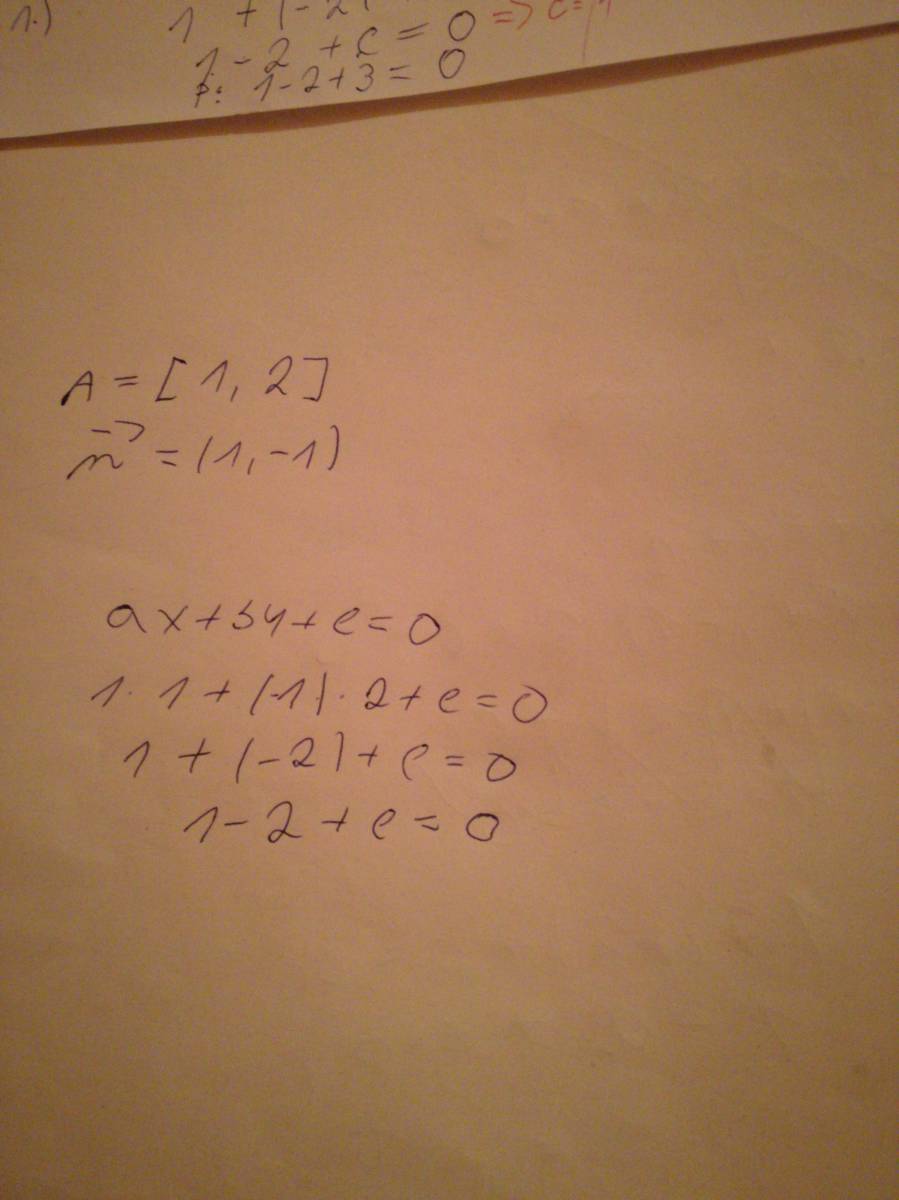 1.) 1 + (-2)
1 - 2 + c = 0 => c =
p: 1-2+3 = 0
A = [1, 2]
n = (1, -1)
ax + by + c = 0
1. 1 + (-1). 2 + c = 0
1 + (-2) + c = 0
1 - 2 + c = 0